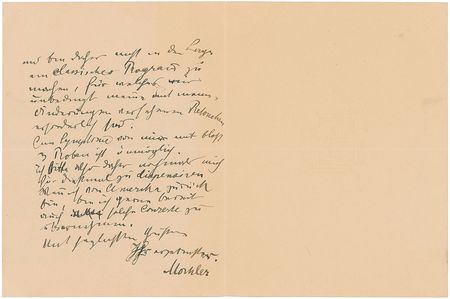 und bin daher nicht in der Lage
ein classisches Program zu
machen, für welches
unbedingt meine mit meinen
Änderungen versehenen Retouchen
erforderlich sind.
Eine Symphonie von mir mit bloß
3 Proben ist unmöglich.
ich bitte also daher mich
für diesmal zu dispensiren
Wenn ich von Amerika zurück
bin, bin ich gerne bereit
auch solche Concerte zu
übernehmen.
Mit herzlichsten Grüßen
Ihr ergebenster
Mahler